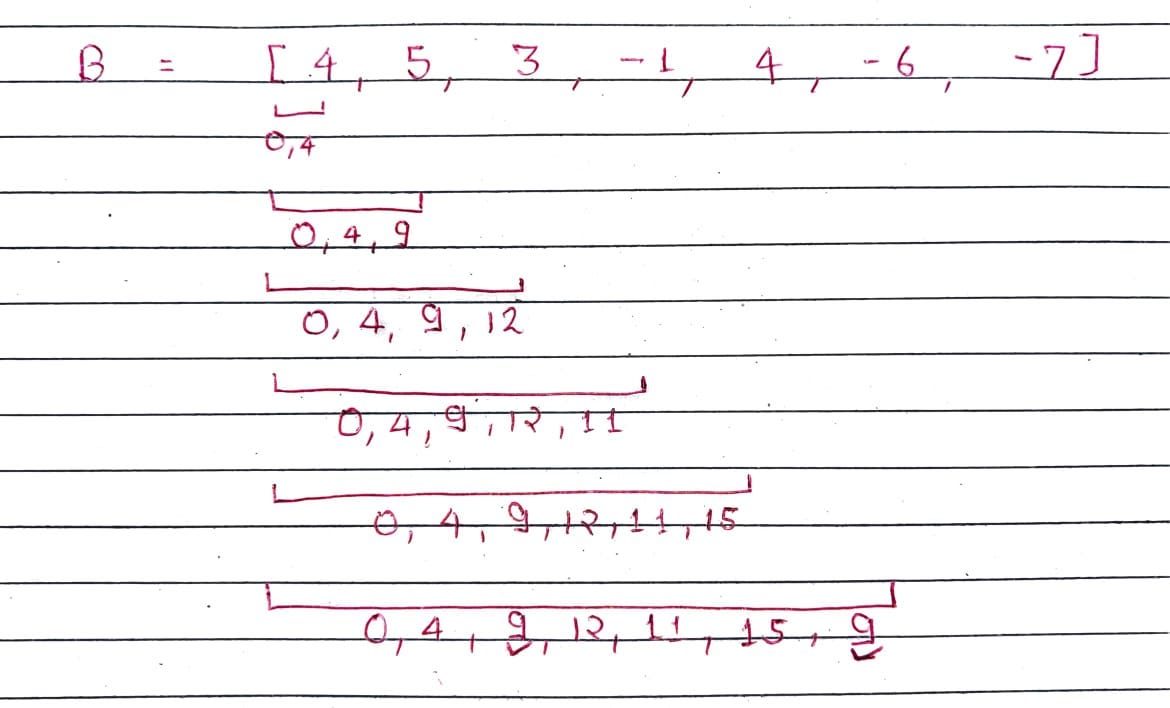 B = [ 4, 5, 3, -1, 4, -6, -7]
0,4
0, 4, 9
0, 4, 9, 12
0, 4, 9, 12, 11
0, 4, 9, 12, 11, 15
0, 4, 9, 12, 11, 15, 9